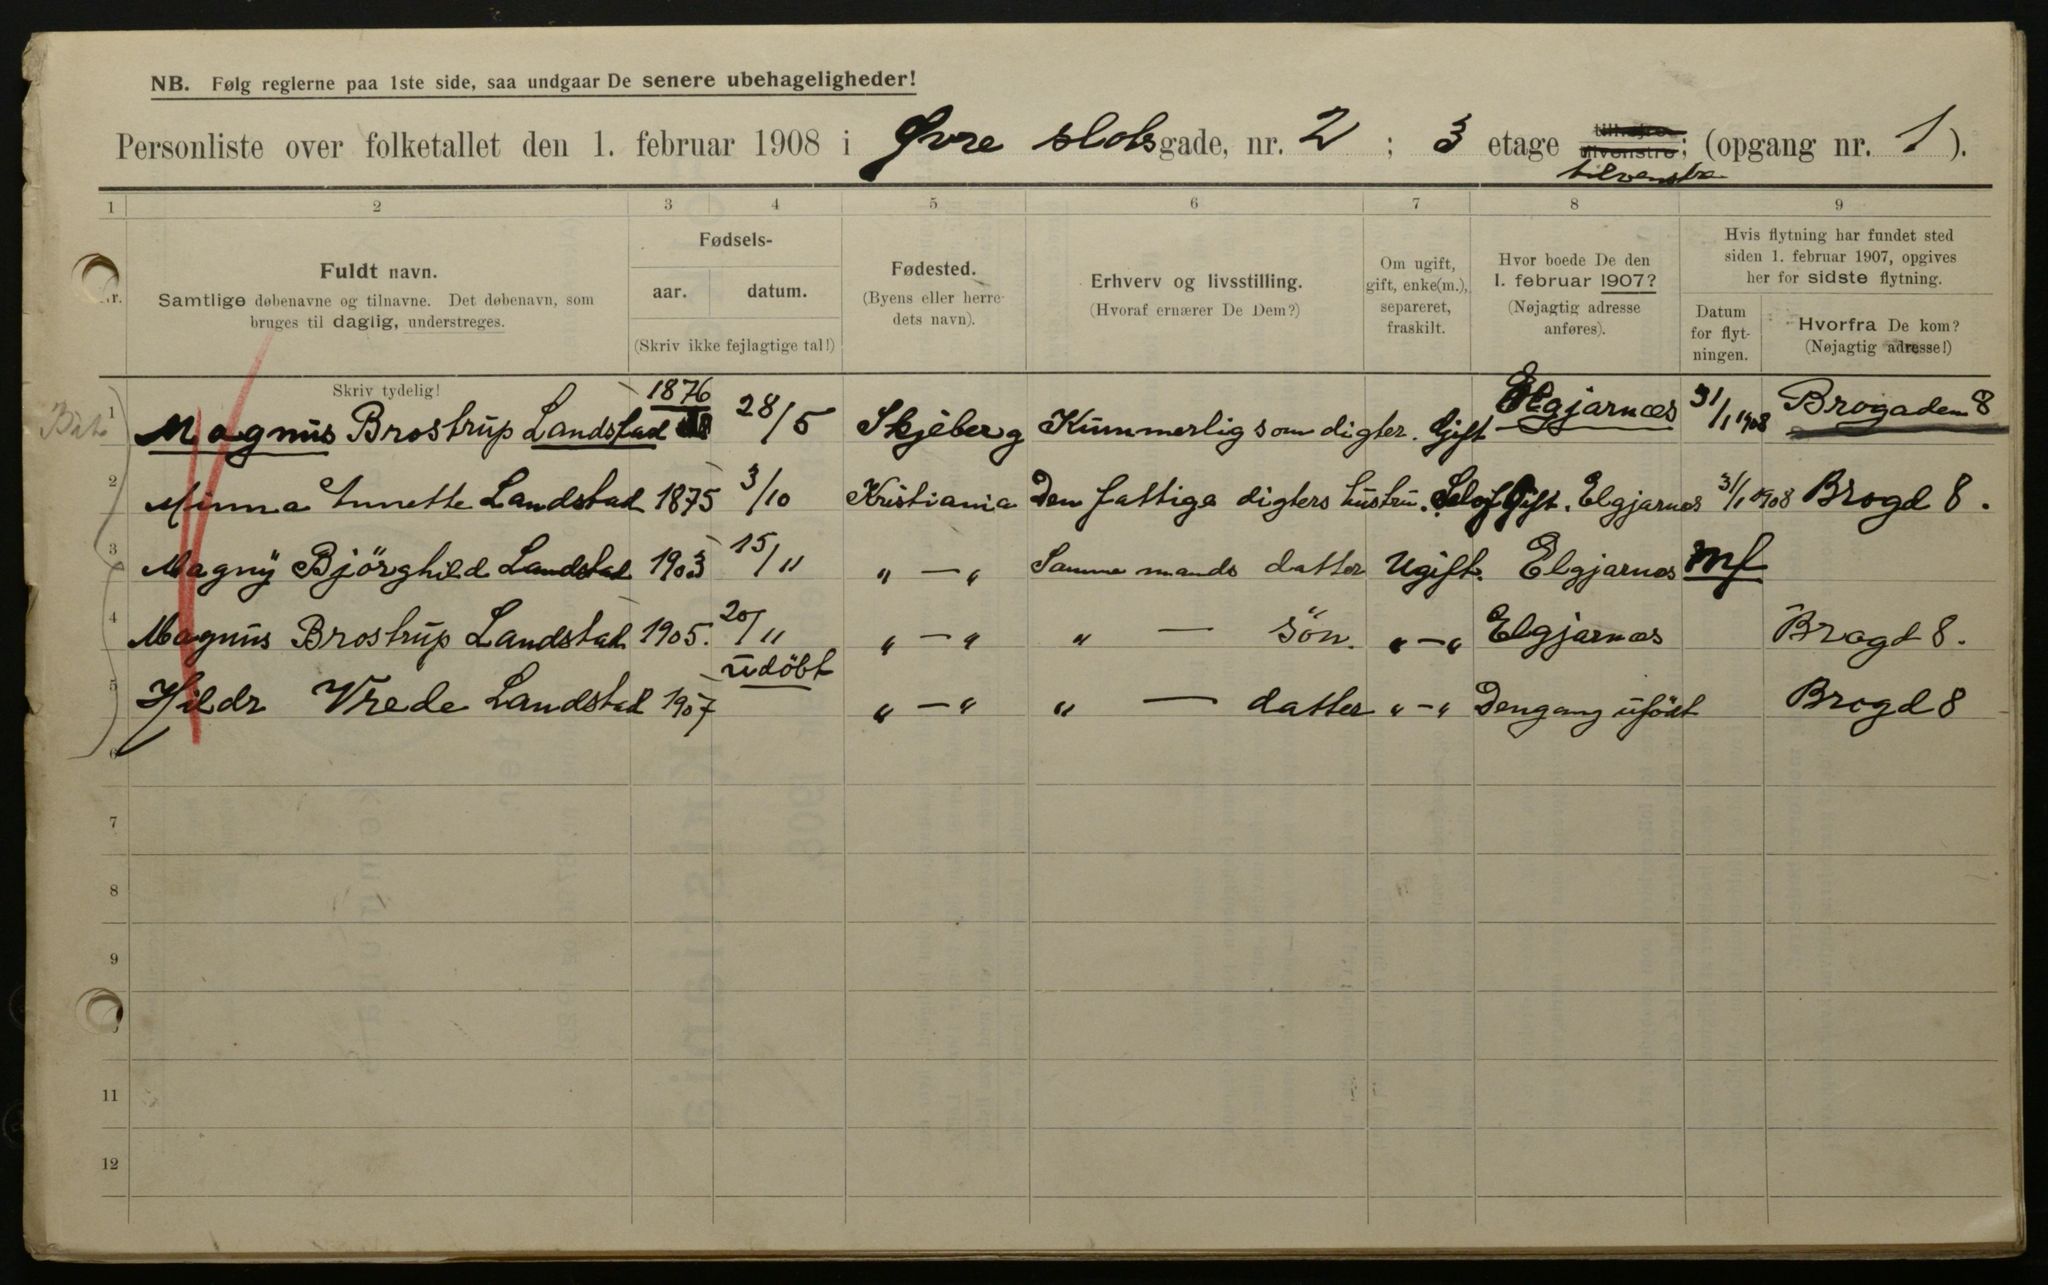 NB. Følg reglerne paa 1ste side, saa undgaar De senere ubehageligheder!
Personliste over folketallet den 1. februar 1908 i Øvre slotsgade, nr. 2 ; 3 etage tilhøire tilvenstre; (opgang nr. 1 ).
tilvenstre
1 2 3 4 5 6 7 8 9
Nr.
Fuldt navn.
Samtlige døbenavne og tilnavne. Det døbenavn, som
bruges til daglig, understreges.
Fødsels-
aar. datum.
(Skriv ikke fejlagtige tal!)
Fødested.
(Byens eller herre-
dets navn).
Erhverv og livsstilling.
(Hvoraf ernærer De Dem?)
Om ugift,
gift, enke(m.),
separeret,
fraskilt.
Hvor boede De den
1. februar 1907?
(Nøjagtig adresse
anføres).
Hvis flytning har fundet sted
siden 1. februar 1907, opgives
her for sidste flytning.
Datum
for flyt-
ningen.
Hvorfra De kom?
(Nøjagtig adresse!)
Skriv tydelig!
1 Magnus Brostrup Landstad 1876 28/5 Skjeberg Kummerlig som digter. Gift Elgjarnæs 31/1 1908 Brogaden 8
2 Minna Annette Landstad 1875 3/10 Kristiania Den fattige digters hustru. Gift. Elgjarnes 31/1 1908 Brogd 8.
3 Magny Bjørghild Landstad 1903 15/11 " — " Samme mands datter Ugift. Elgjarnes mf
4 Magnus Brostrup Landstad 1905. 20/11 " — " " — søn. " — " Elgjarnæs Brogd 8.
5 Hildr Vrede Landstad 1907 udöbt " — " " — datter " — " Dengang ufödt Brogd 8
6
7
8
9
11
12